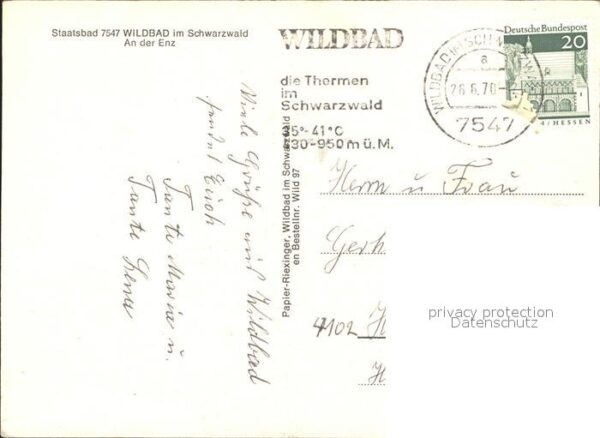 Staatsbad 7547 WILDBAD im Schwarzwald
An der Enz
Viele Grüße aus Wildbad
sendet Euch
Tante Maria u.
Tante Lena
Papier-Riexinger, Wildbad im Schwarzwald
en Bestellnr. Wild 97
WILDBAD
die Thermen
im
Schwarzwald
35°-41°C
430-950m ü. M.
WILDBAD IM SCHWARZWALD
a
26.6.70
7547
Deutsche Bundespost
20
/ HESSEN
Herrn u Frau
Gerh
4102 H
H
privacy protection
Datenschutz